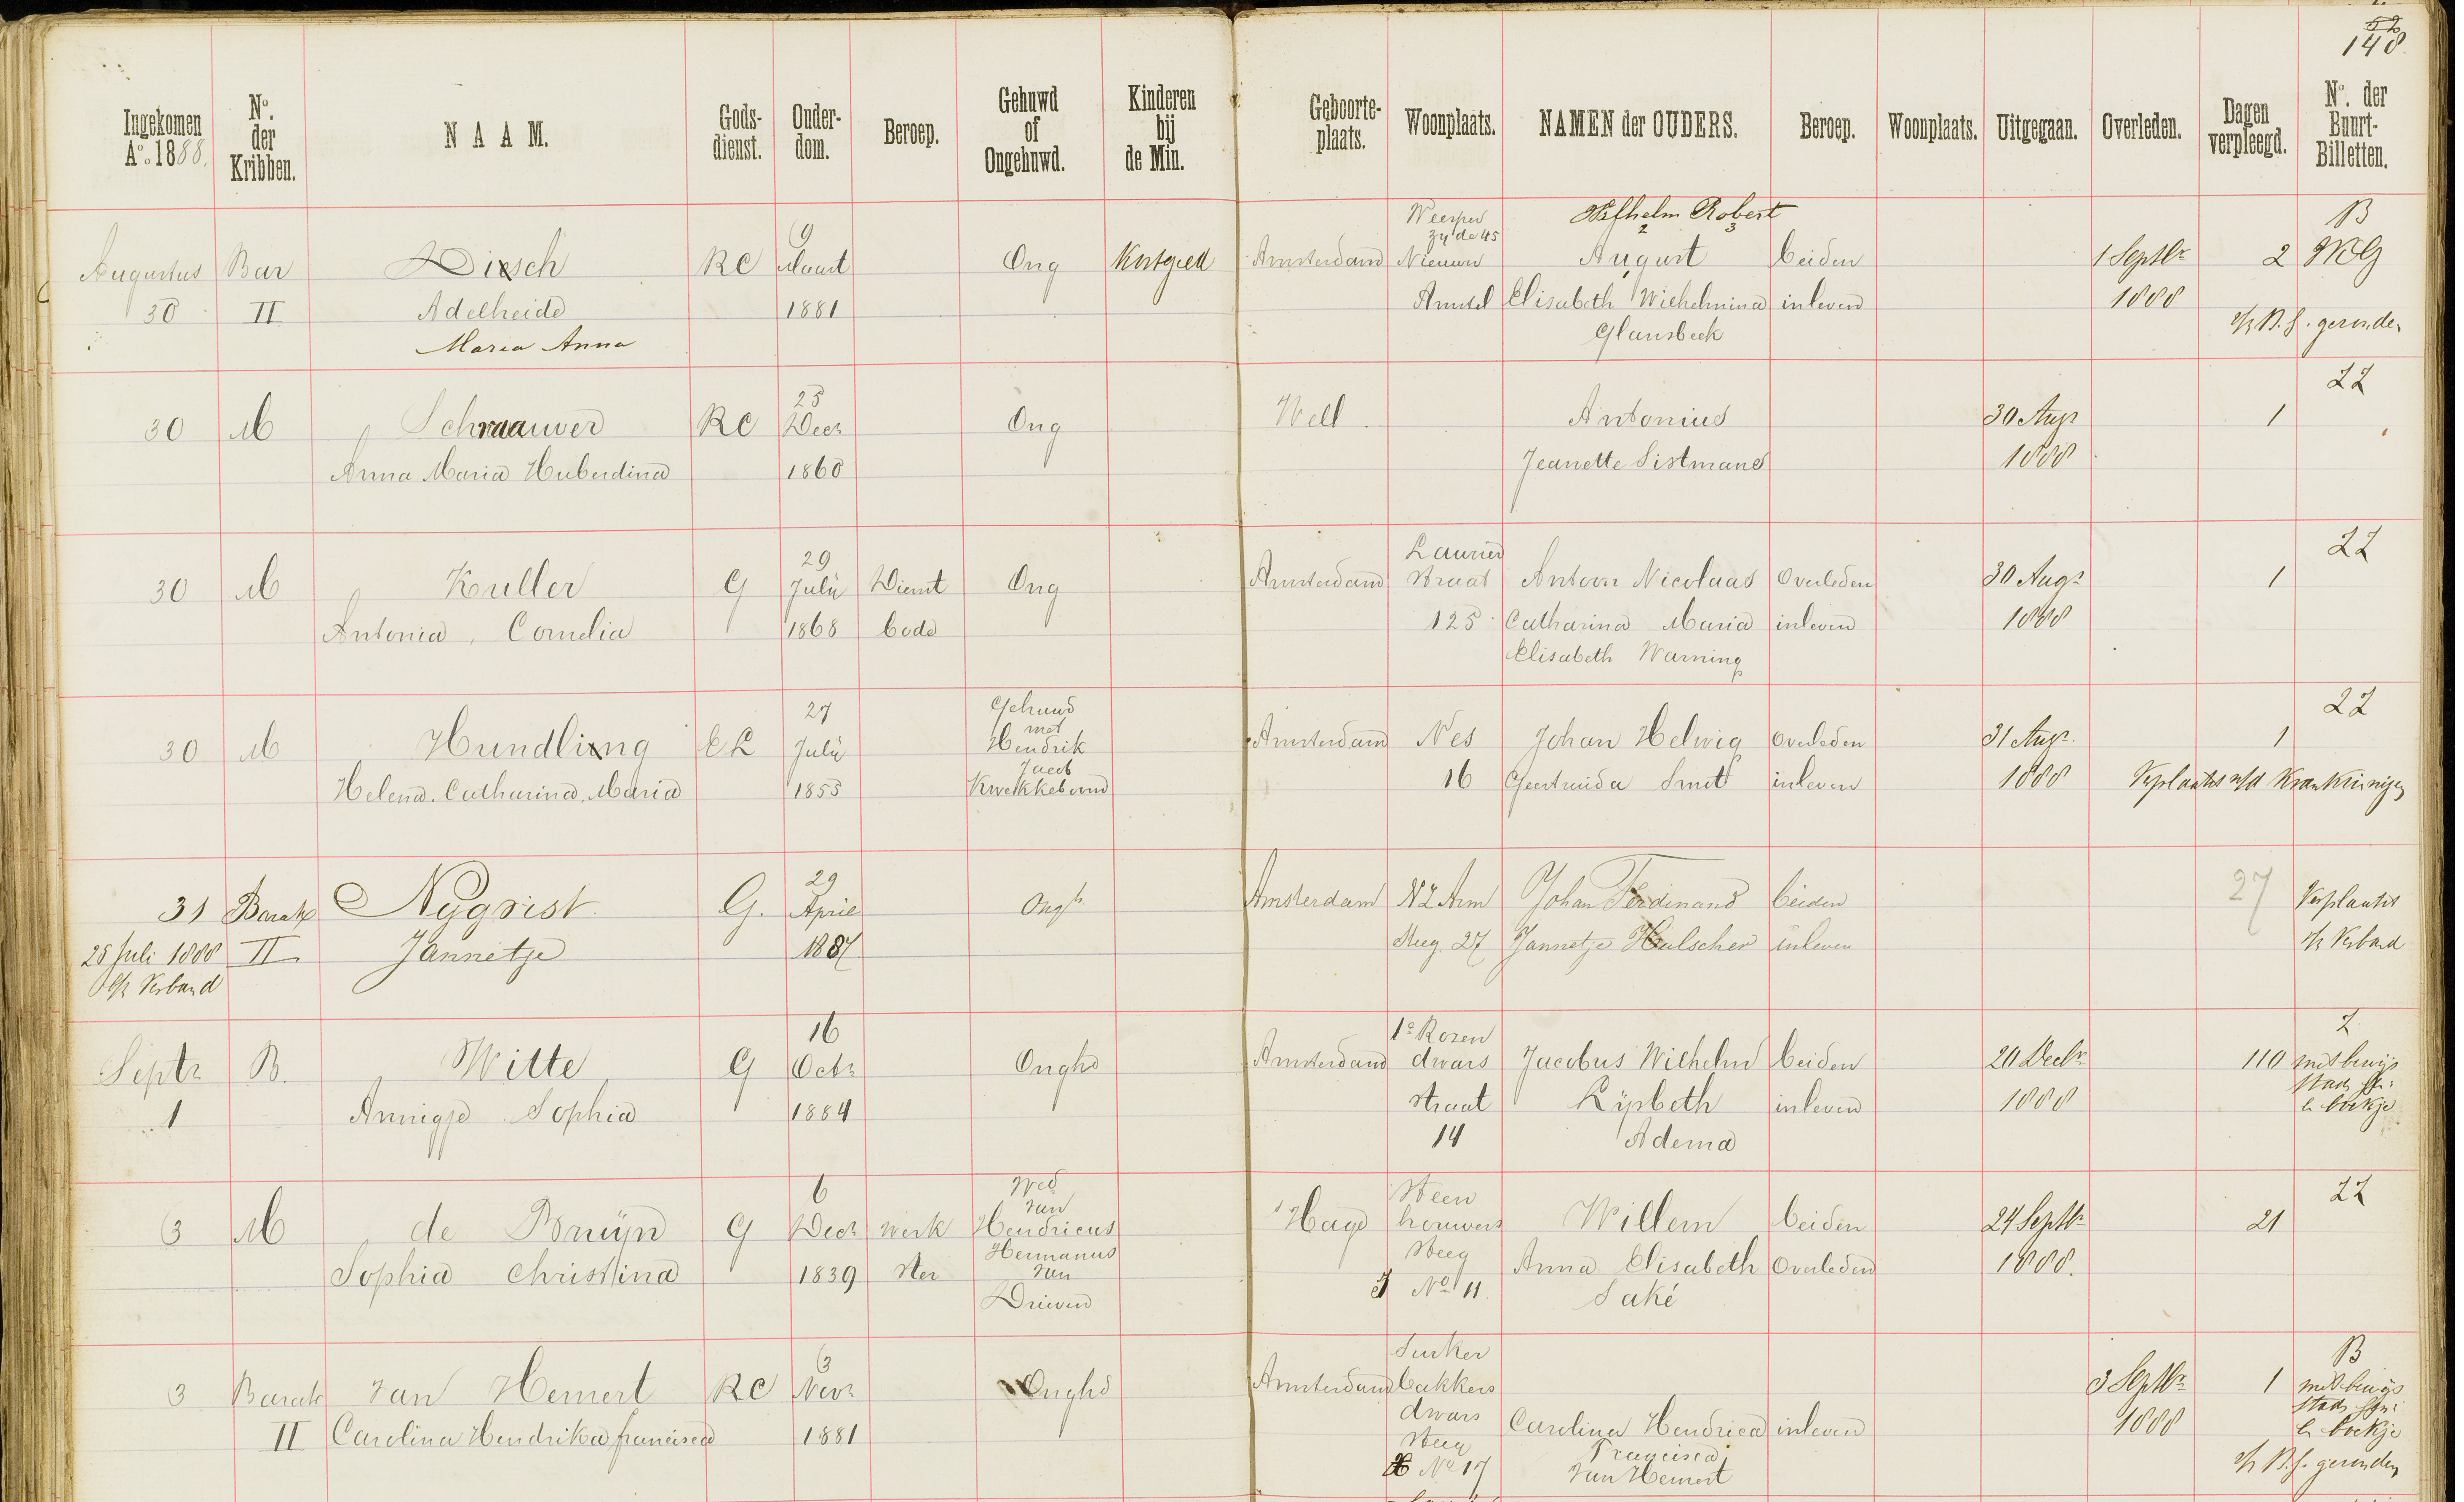 148
Ingekomen Ao. 1888. No. der Kribben. NAAM. Gods-dienst. Ouder-dom. Beroep. Gehuwd of Ongehuwd. Kinderen bij de Min. Geboorte-plaats. Woonplaats. NAMEN der OUDERS. Beroep. Woonplaats. Uitgegaan. Overleden. Dagen verpleegd. No. der Buurt-Billetten.
9 Weesper Wilhelm Robert B
zyde 45 2 3
Augustus Bar Disch RC Maart Ong Kostgeld Amsterdam Nieuwe August beiden 1 Septbr 2
30 II Adelheide 1881 Amstel Elisabeth Wilhelmina inleven 1888
Maria Anna Glansbeek
25 22
30 M Schraauwer RC Decr Ong Well Antonius 30 Augs 1
Anna Maria Huberdina 1860 Jeanette Sistmans 1888
29 Laurier 22
30 M Kuller G July Dienst Ong Amsterdam straat Antoon Nicolaas Overleden 30 Augs 1
Antonia Cornelia 1868 bode 125 Catharina Maria inleven 1888
Elisabeth Warning
27 Gehuwd 22
met
30 M Hundling EL July Hendrik Amsterdam Nes Johan Helwig Overleden 31 Augs 1
Jacob
Helena Catharina Maria 1855 Kwekkeboom 16 Geertruida Smit inleven 1888
29
31 Barak Nygrist G. April Ongh Amsterdam NZ Arm Johan Ferdinand beiden 27 Verplaatst
25 Juli 1888 II Jannetje 1887 steeg 27 Jannetje Hulscher inleven v/h Verband
v/h Verband
16 1e Rozen 2
Septr B. Witte G Octr Onghd Amsterdam dwars Jacobus Wilhelm beiden 20 Decbr 110 met bewijs
1 Annigje Sophia 1884 straat Lijsbeth inleven 1888 boekje
14 Adema
6 Wed Steen 22
van
3 M de Bruijn G Decr werk Hendricus 'sHage houwers Willem beiden 24 Septbr 21
Hermanus steeg
Sophia Christina 1839 ster van No 11 Anna Elisabeth Overleden 1888.
Drieven Saké
3 Suiker B
3 Barak van Hemert RC Novr Onghd Amsterdam bakkers 3 Septbr 1 met bewijs
dwars
II Carolina Hendrika francisca 1881 steeg Carolina Hendrica inleven 1888 boekje
No 17 Francisca
van Hemert